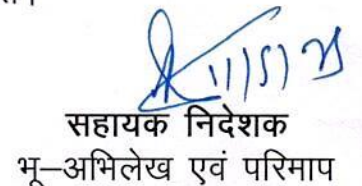 11/5/25
सहायक निदेशक
भू–अभिलेख एवं परिमाप